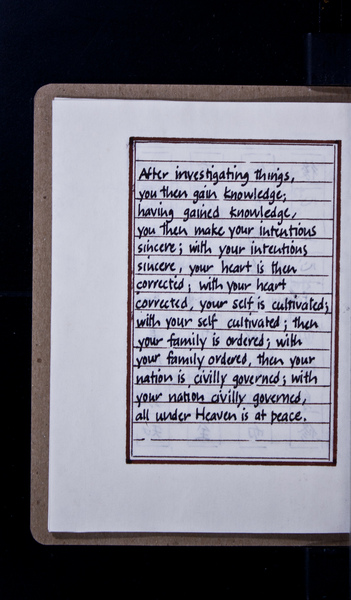 After investigating things,
you then gain knowledge;
having gained knowledge,
you then make your intentions
sincere; with your intentions
sincere, your heart is then
corrected; with your heart
corrected, your self is cultivated;
with your self cultivated; then
your family is ordered; with
your family ordered, then your
nation is civilly governed; with
your nation civilly governed,
all under Heaven is at peace.